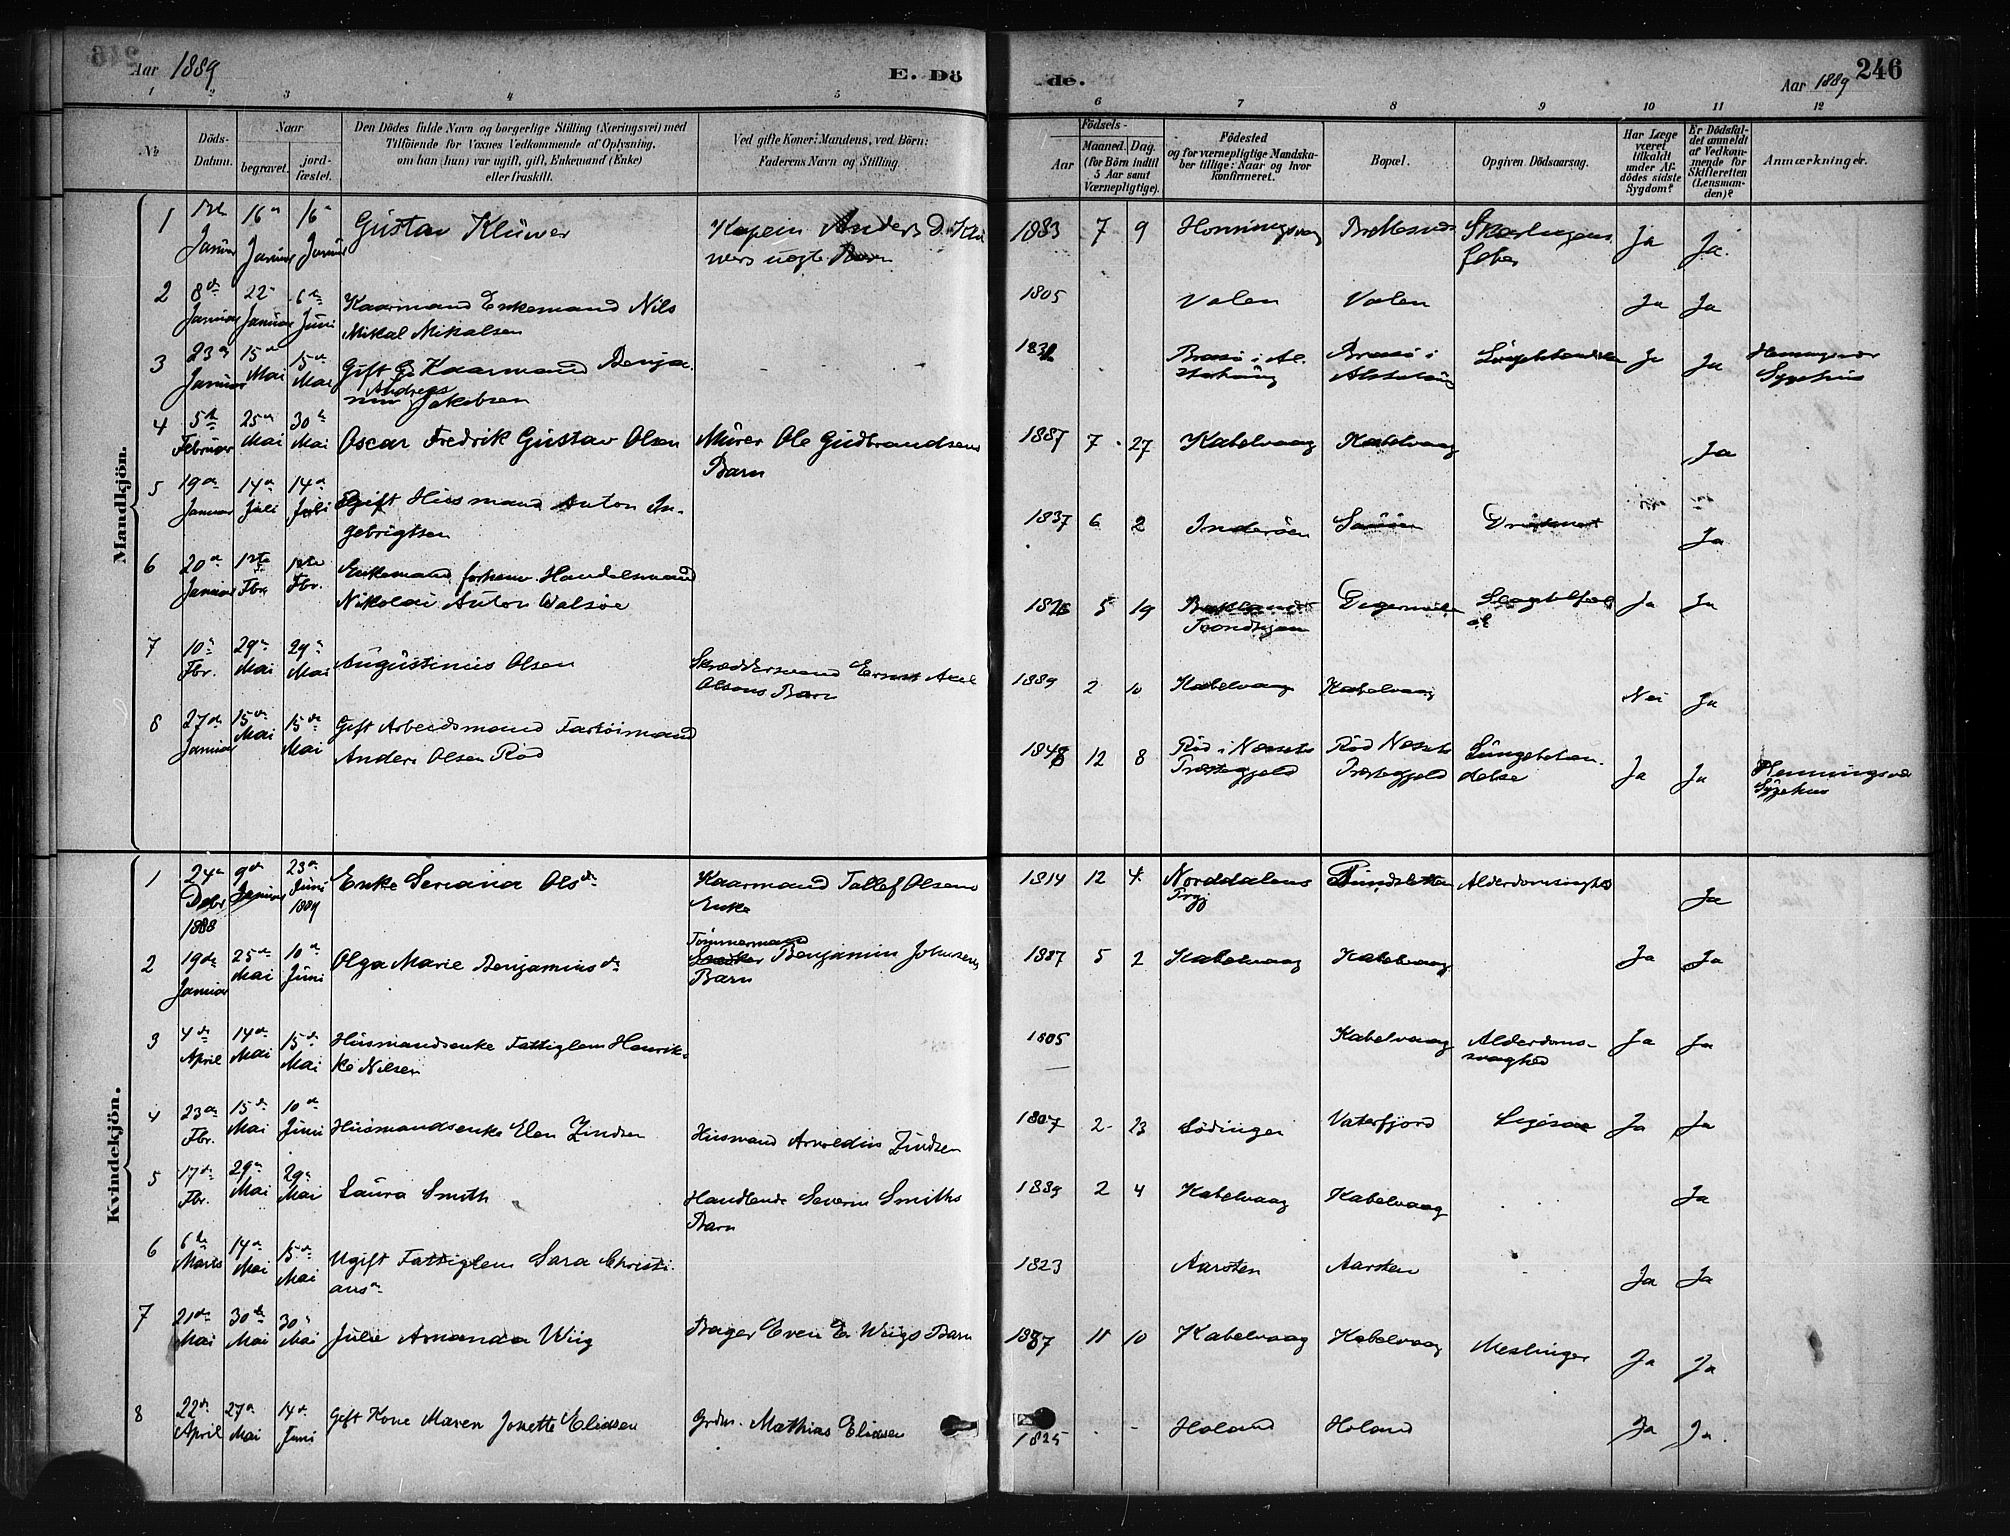 Aar 1889
E. Dö
de.
Aar 1889
246
1 2 3 4 5 6 7 8 9 10 11 12
№
Döds-
Datum.
Naar
begravet.
jord-
fæstet.
Den Dödes fulde Navn og borgerlige Stilling (Næringsvei) med
Tilföiende for Voxnes Vedkommende af Oplysning,
om han (hun) var ugift, gift, Enkemand (Enke)
eller fraskilt.
Ved gifte Koner: Mandens, ved Börn:
Faderens Navn og Stilling.
Födsels-
Aar
Maaned. Dag.
(for Börn indtil
5 Aar samt
Værnepligtige).
Födested
og for værnepligtige Mandska-
ber tillige: Naar og hvor
konfirmeret.
Bopæl.
Opgiven Dödsaarsag.
Har Læge
været
tilkaldt
under Af-
dödes sidste
Sygdom?
Er Dödsfal-
det anmeldt
af Vedkom-
mende for
Skifteretten
(Lensman-
den)?
Anmærkninger.
Mandkjön.
1
Januar
16
Januar
16
Januar
Gustav Klüwer
Anders D. Klü
wers
1883 7 9
Honningsvag
Ja
Ja
2
8de
Januar
22
Januar
6te
Juni
Kaarmand Enkemand Nils
Mikal Mikalsen
1805
Valen
Valen
Ja
Ja
3
23de
Januar
15de
Mai
15de
Mai
Gift Kaarmand Benja-
min Andreas Jakobsen
Brasö i Al-
stahaug
Brasö i
Alstahaug
Ja
Ja
Henningsvær
Sygehus
4
5te
Februar
25de
Mai
30te
Mai
Oscar Fredrik Gustav Olsen
Murer Ole Gudbrandsens
Barn
1887 7 27
Kabelvaag
Kabelvaag
Ja
5
19de
Januar
14de
Juli
14de
Juli
Gift Husmand Anton In-
gebrigtsen
1837 6 2
Inderöen
Druknet
Ja
6
20de
Januar
1ste
Fbr
1ste
Fbr.
Enkemand forhenv. Handelsmand
Nikolai Anton Walsöe
5 19
Trondhjem
Digermulen
Ja
Ja
7
10de
Fbr.
29de
Mai
29de
Mai
Augustinus Olsen
Skræddersvend Ernst Axel
Olsens Barn
1889 2 10
Kabelvaag
Kabelvaag
Nei
Ja
8
27de
Januar
15de
Mai
15de
Mai
Gift Arbeidsmand Fartöimand
Anders Olsen Röd
12 8
Röd i Nessets
Præstegjeld
Röd Nessets
Præstegjeld
Lungebetæn-
delse
Ja
Ja
Henningsvær
Sygehus
Kvindekjön.
1
24de
Debr
1888
9de
Januar
23de
Juni
1889
Enke Seriana Olsdr.
Kaarmand Tollef Olsens
Enke
1814 12 4
Norddalens
Prgj
Alderdomssvaghed
Ja
2
19de
Januar
25de
Mai
10de
Juni
Olga Marie Benjaminsdr.
Tömmermand
Snedker Benjamin Johnsens
Barn
1887 5 2
Kabelvaag
Kabelvaag
Ja
Ja
3
4de
April
14de
Mai
15de
Mai
Husmandsenke Fattiglem Henrik-
ke Nilsen
1805
Kabelvaag
Alderdoms-
svaghed
Ja
Ja
4
23de
Fbr.
15de
Mai
10de
Juni
Husmandsenke Elen Zindsen
Husmand Arnoldus Zindsen
1807 2 23
Lödingen
Vaterfjord
Ligesaa
Ja
Ja
5
17de
Fbr.
29de
Mai
29de
Mai
Laura Smith
Handlende Severin Smiths
Barn
1889 2 4
Kabelvaag
Kabelvaag
Ja
6
6te
Marts
14de
Mai
15de
Mai
Ugift Fattiglem Sara Christi-
ansdr
1823
Aarsten
Aarsten
Ja
Ja
7
21de
Mai
30te
Mai
30te
Mai
Julie Amanda Wiig
Bager Even E. Wiigs Barn
1887 11 10
Kabelvaag
Kabelvaag
Meslinger
Ja
Ja
8
22de
April
27de
Mai
14de
Juni
Gift Kone Maren Jonette Eliasen
Grdm. Mathias Eliasen
1825
Holand
Holand
Ja
Ja